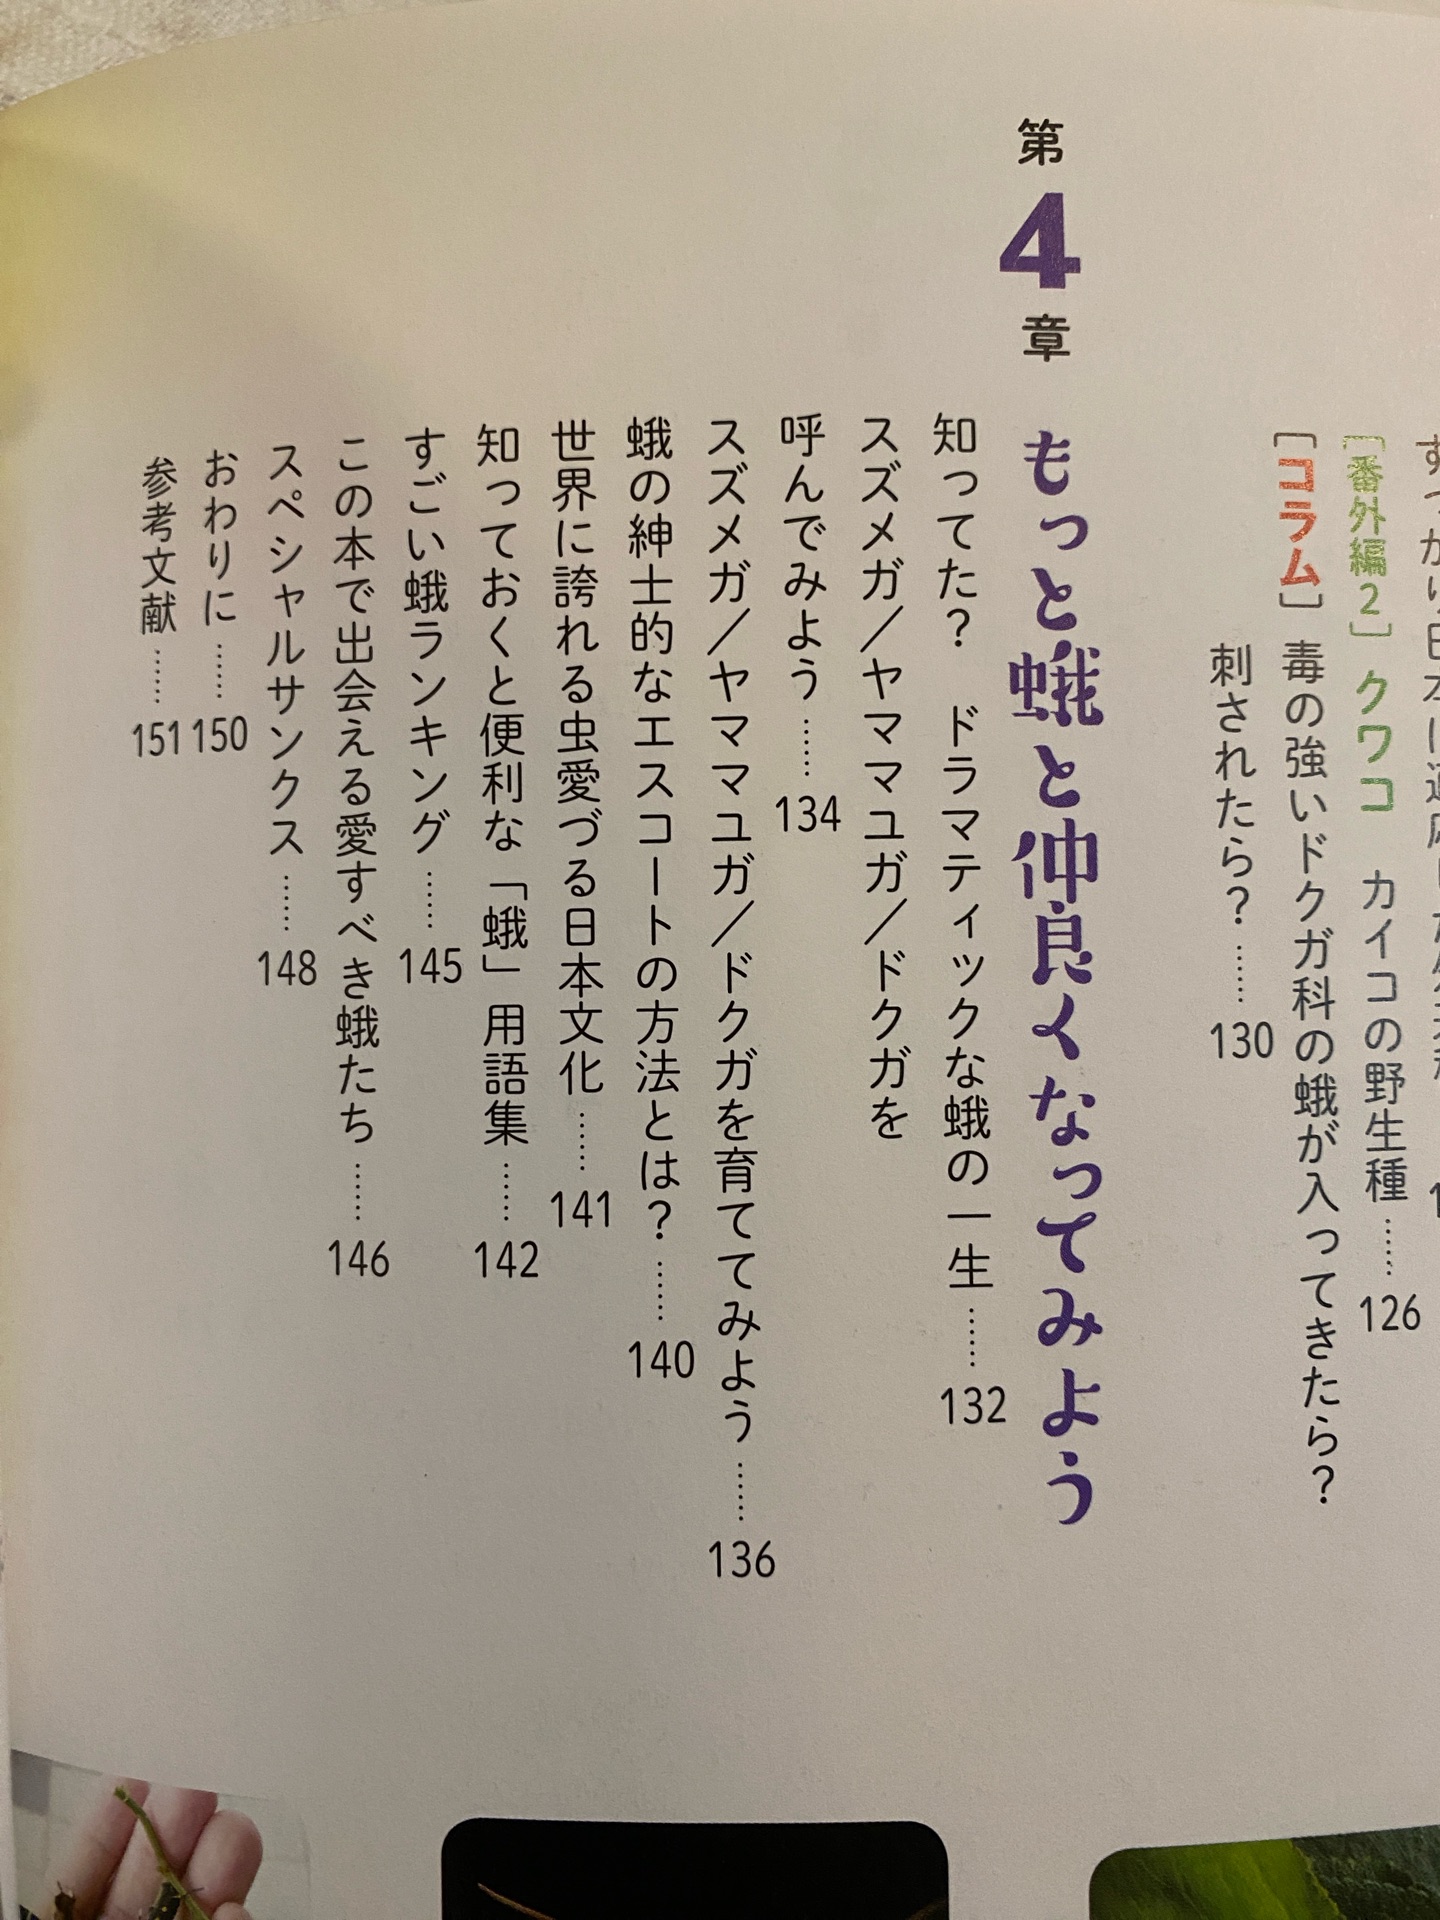 ［番外編2］ クワコ　カイコの野生種……126
［コラム］ 毒の強いドクガ科の蛾が入ってきたら？
刺されたら？……130
第4章 もっと蛾と仲良くなってみよう
知ってた？　ドラマティックな蛾の一生……132
スズメガ／ヤママユガ／ドクガを
呼んでみよう……134
スズメガ／ヤママユガ／ドクガを育ててみよう……136
蛾の紳士的なエスコートの方法とは？……140
世界に誇れる虫愛づる日本文化……141
知っておくと便利な「蛾」用語集……142
すごい蛾ランキング……145
この本で出会える愛すべき蛾たち……146
スペシャルサンクス……148
おわりに……150
参考文献……151